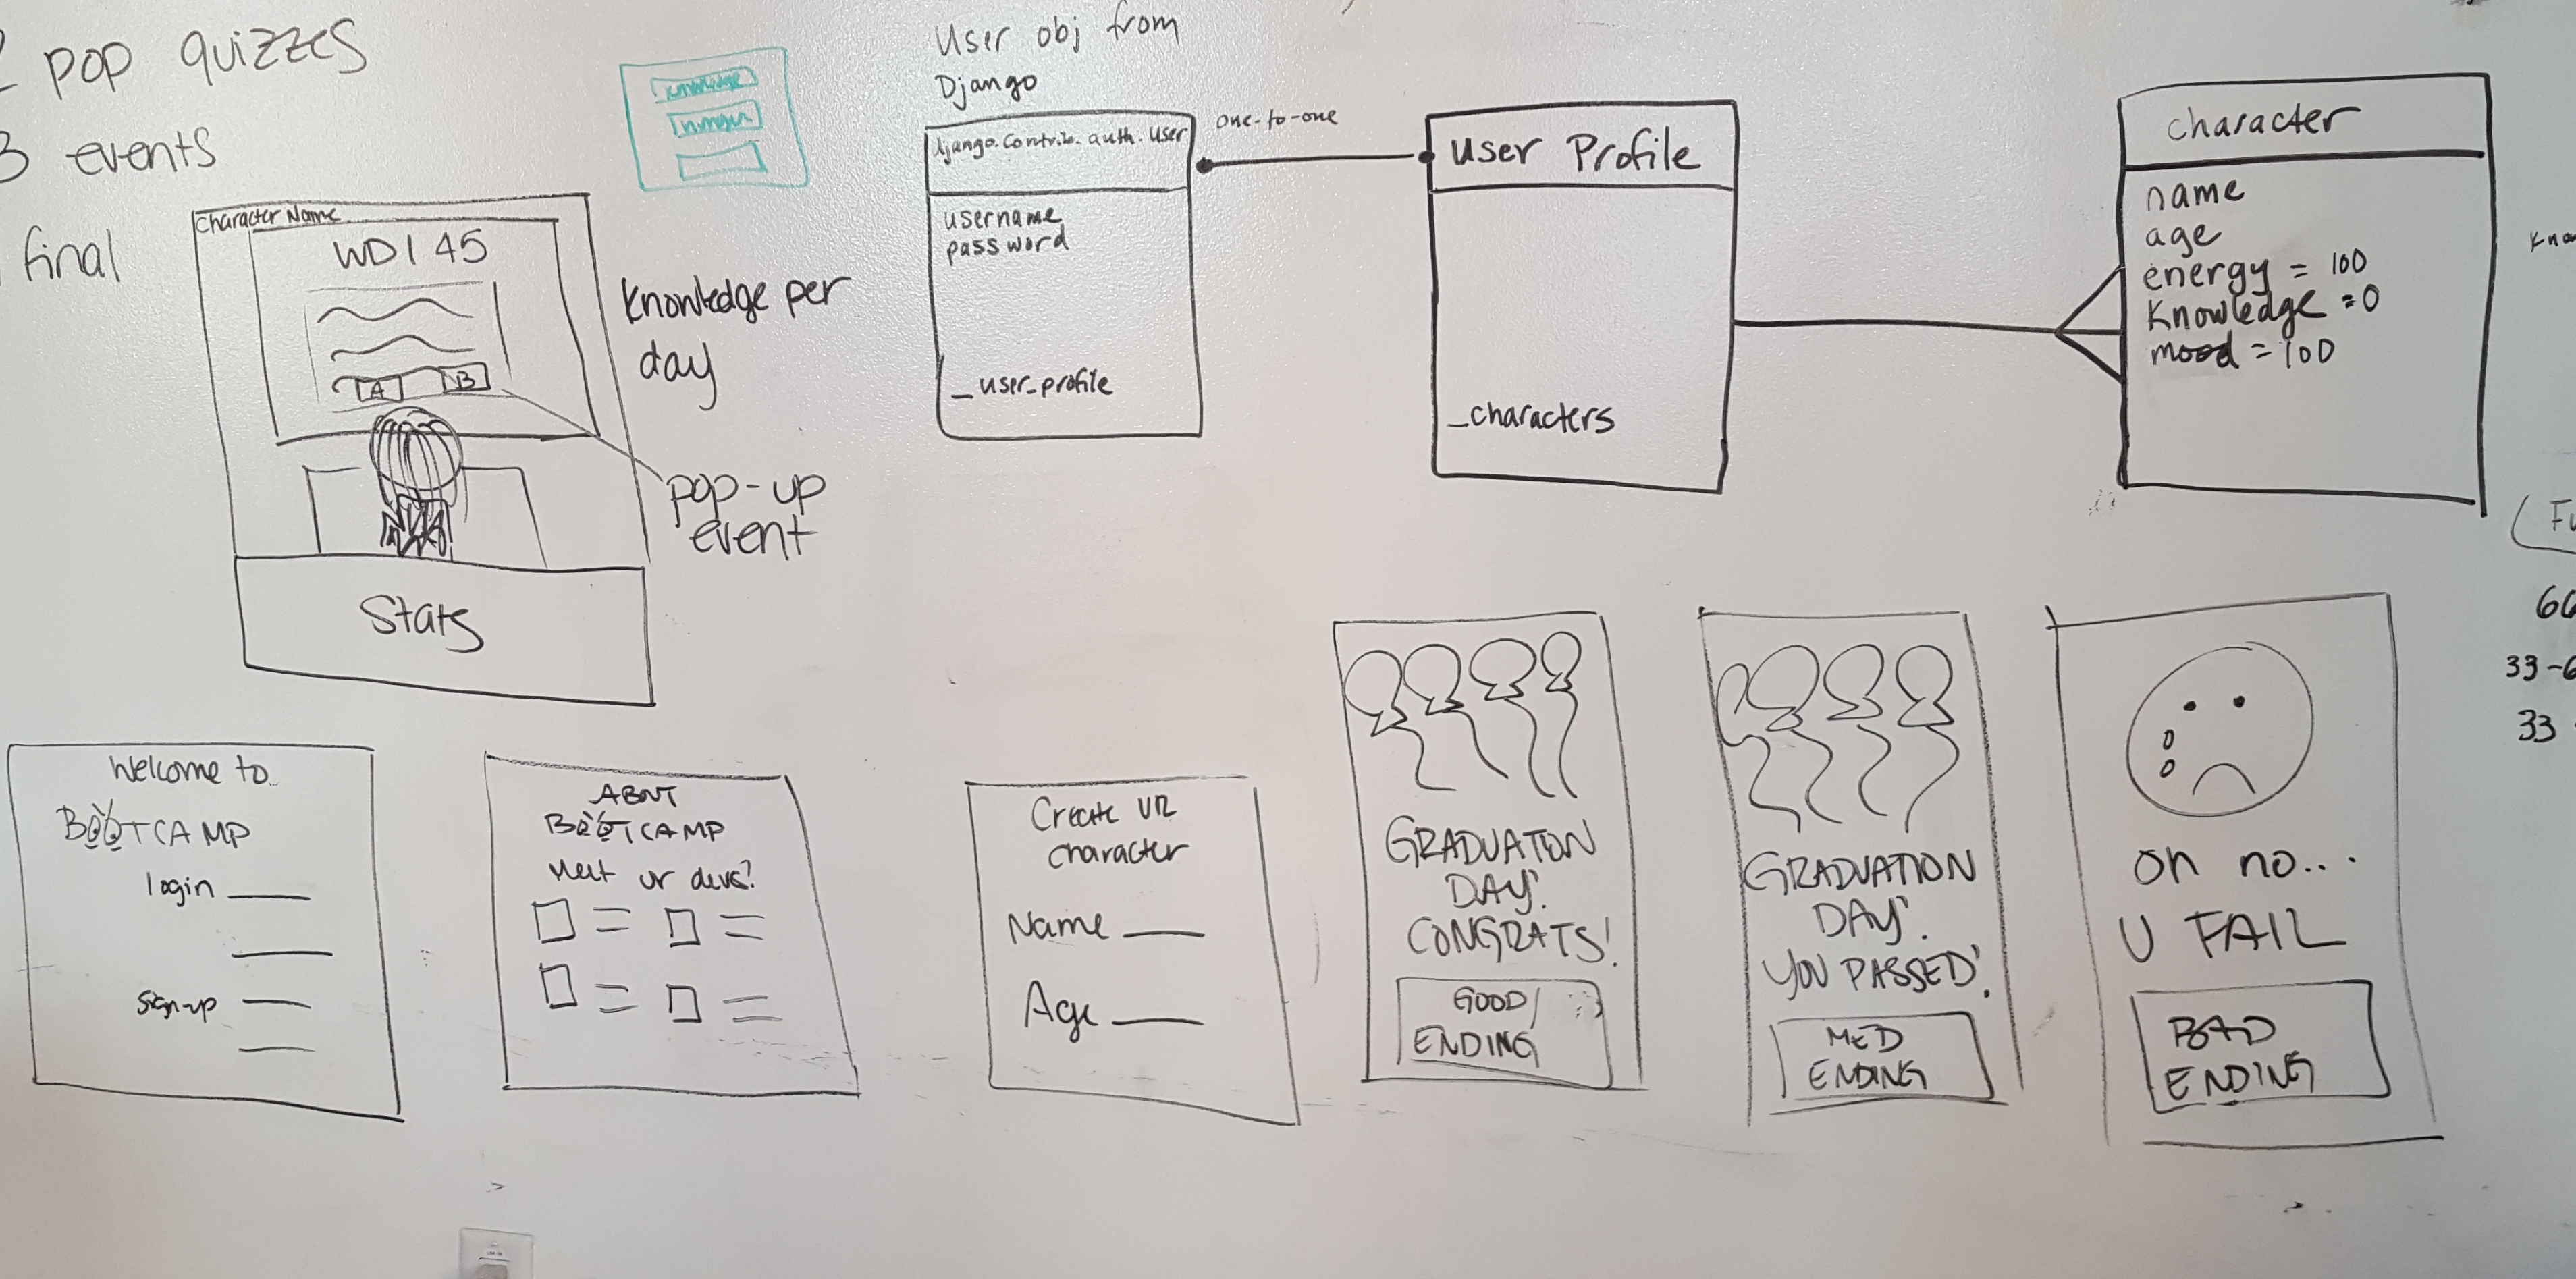 2 pop quizzes
3 events
final
Knowledge
Character Name
WDI 45
A
B
Stats
Knowledge per
day
pop-up
event
User obj from
Django
django.contrib.auth.user
username
password
_user_profile
one-to-one
User Profile
_characters
character
name
age
energy = 100
Knowledge = 0
mood = 100
Know
(Fu
66
33-6
33
Welcome to
BOOTCAMP
login
sign-up
ABOUT
BOOTCAMP
Meet ur devs!
Create UR
character
Name
Age
GRADUATION
DAY!
CONGRATS!
GOOD
ENDING
GRADUATION
DAY!
YOU PASSED!
MED
ENDING
oh no...
U FAIL
BAD
ENDING